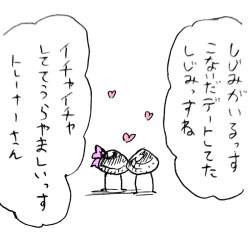 しじみがいるっす
こないだデートしてた
しじみっすね
イチャイチャ
しててうらやましいっす
トレーナーさん